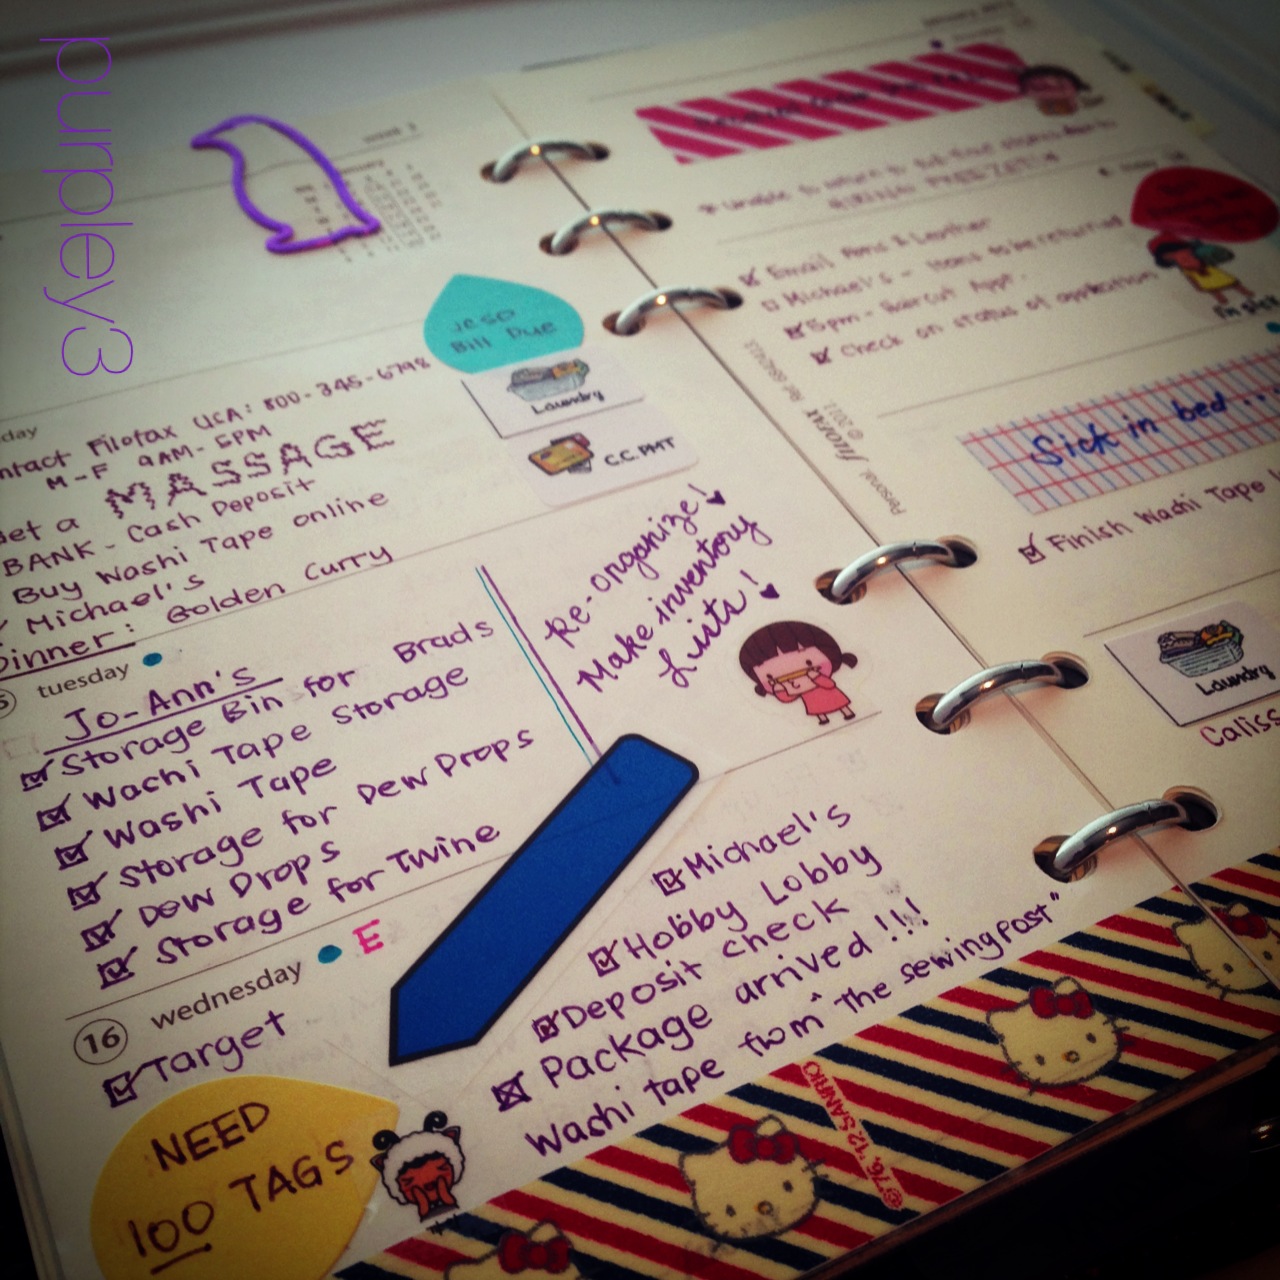 purpley3
week 3
JCSO
Bill Due
Laundry
C.C. PMT
day
ntact Filofax USA: 800-345-6798
M-F 9AM-5PM
Get a MASSAGE
BANK - Cash Deposit
Buy Washi Tape online
Michael's
Dinner: Golden Curry
Re-organize!
Make inventory
Lists!
tuesday
Jo-Ann's
Storage Bin for Brads
Wachi Tape Storage
Washi Tape
Storage for Dew Drops
Dew Drops
Storage for Twine
16 wednesday E
Target
NEED
100 TAGS
Michael's
Hobby Lobby
Deposit check
Package arrived!!!
Washi tape from "the sewing post"
©'76,'12 SANRIO
Email Pens & Leather
Michael's - items to be returned
5pm - Haircut Appt.
Check on status of application
I'm sick
Personal filofax © 2011
Sick in bed...
Finish Washi Tape
Laundry
Caliss